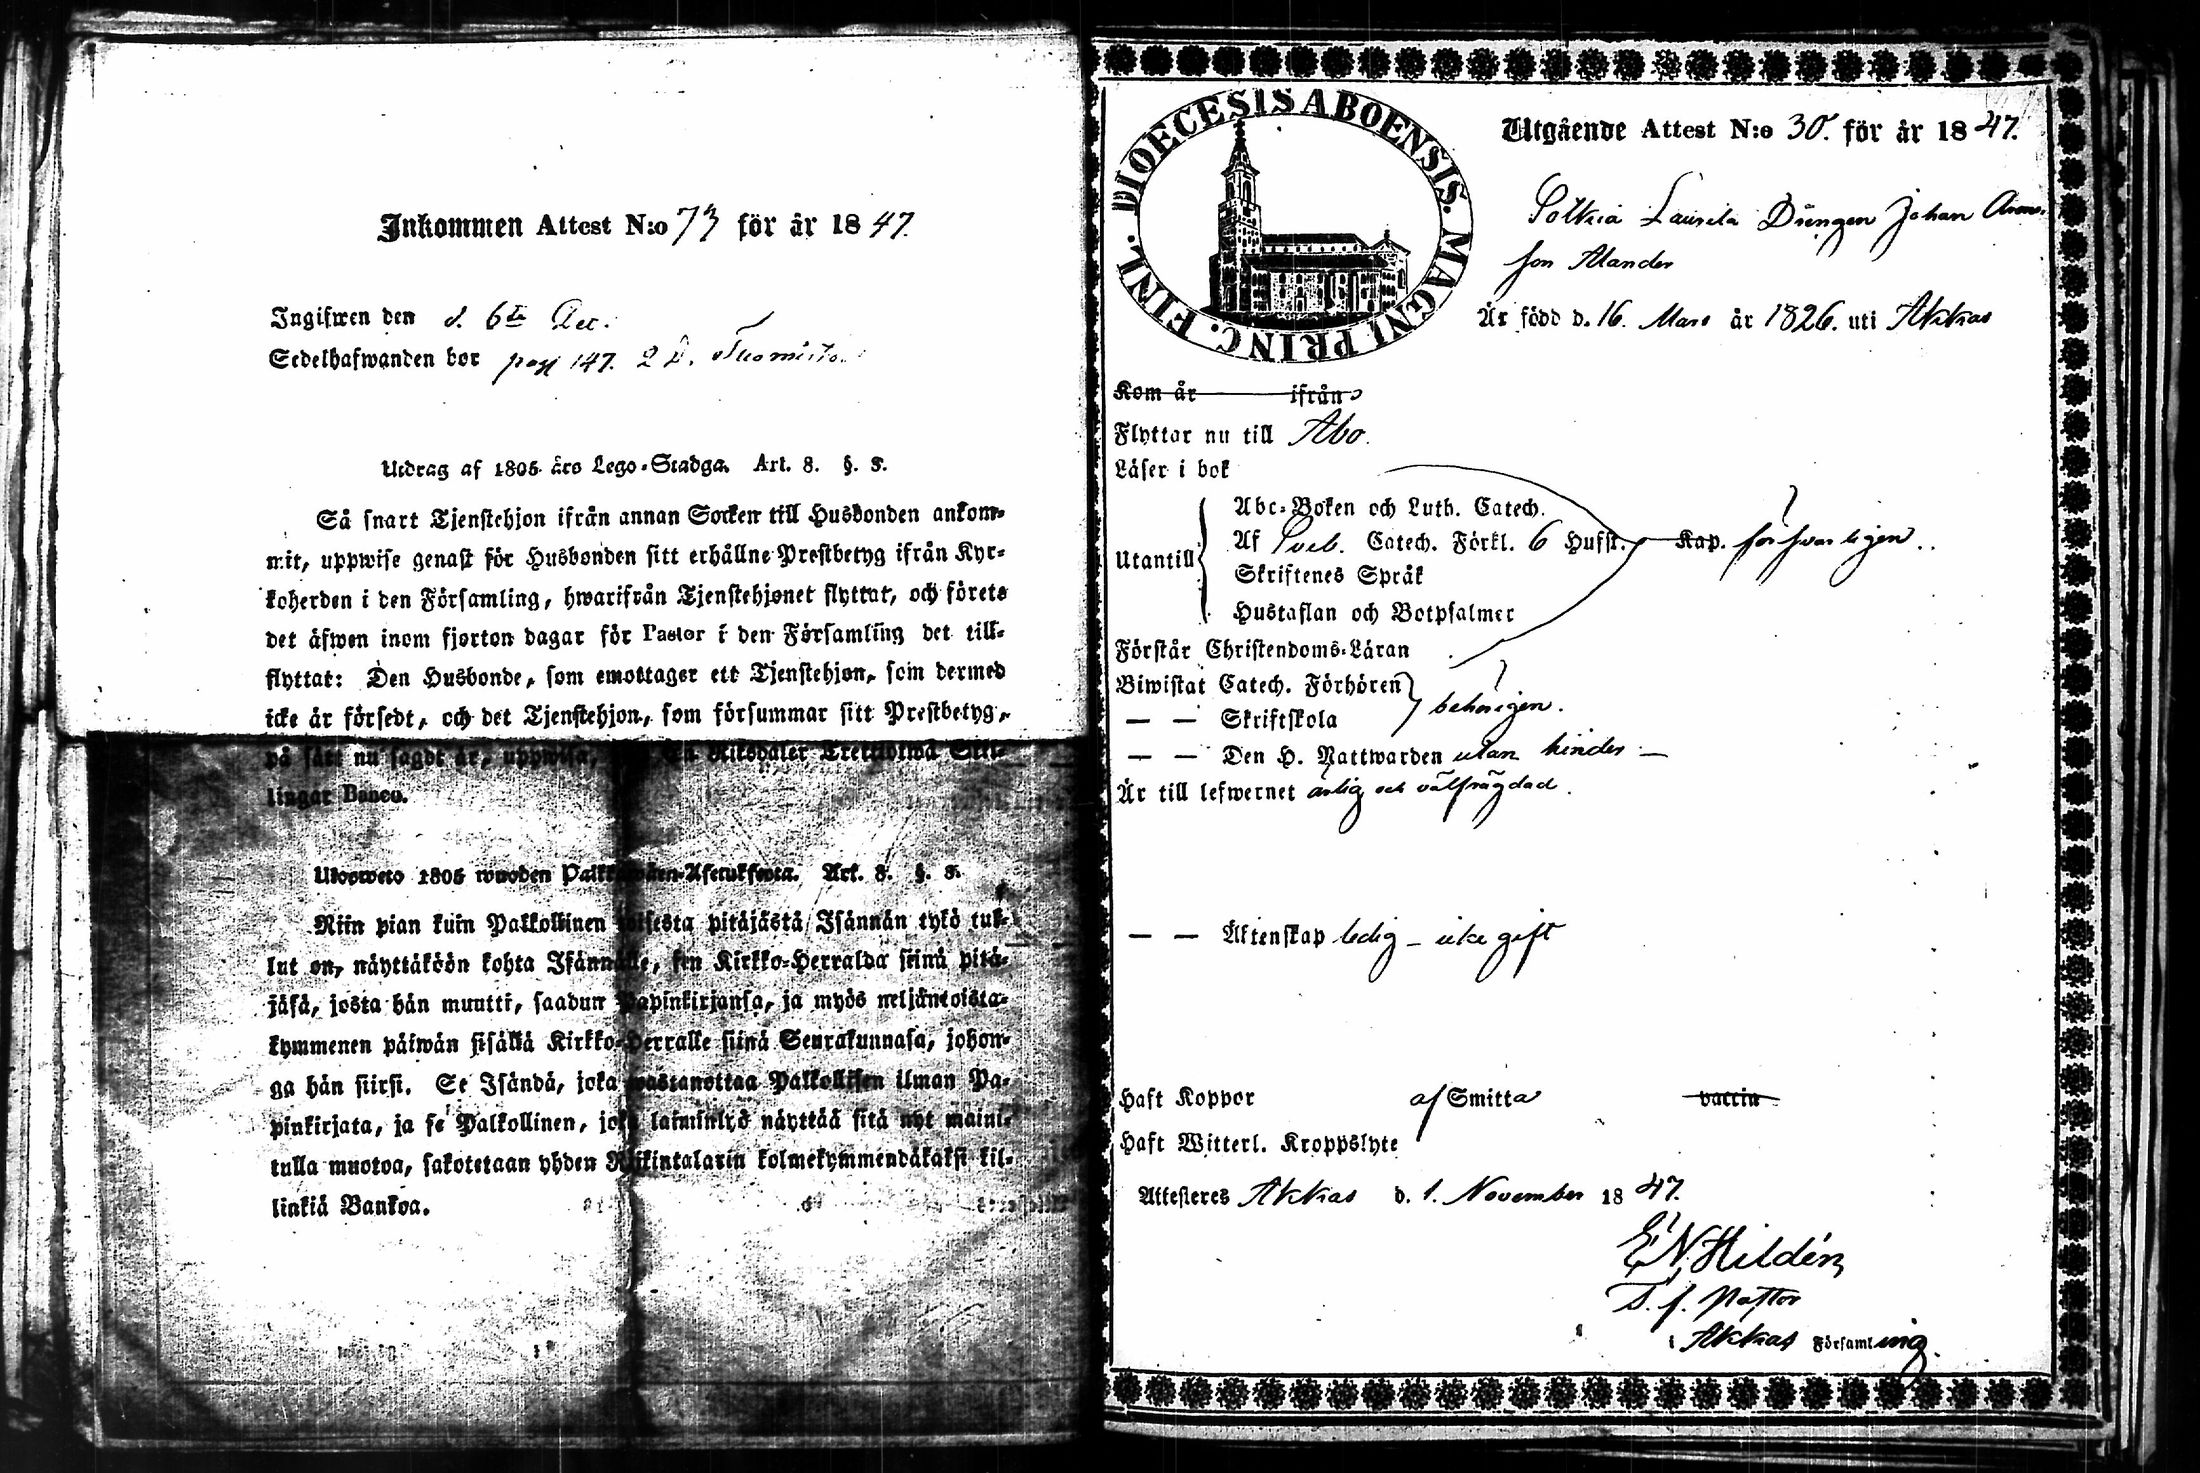 Inkommen Attest N:o 73 för år 1847.
Ingifwen den d. 6te Dec.
Sedelhafwanden bor pag 147. 2 D. Tuomisto
Utdrag af 1805 års Lego-Stadga. Art. 8. §. 8.
Så snart Tjenstehjon ifrån annan Socken till Husbonden ankom-
mit, uppwise genast för Husbonden sitt erhållne Prestbetyg ifrån Kyr-
koherden i den Församling, hwarifrån Tjenstehjonet flyttat, och förete
det äfwen inom fjorton dagar för Pastor i den Församling det till-
flyttat: Den Husbonde, som emottager ett Tjenstehjon, som dermed
icke är försedt, och det Tjenstehjon, som försummar sitt Prestbetyg,
på sätt nu sagdt är, uppwisa, En Riksdaler Trettiotwå Skil-
lingar Banco.
Ulosweto 1805 wuoden Palkkawäen-Asetuksesta. Art. 8. §. 8.
Niin pian kuin Palkollinen toisesta pitäjästä Isännän tykö tul-
lut on, näyttäköön kohta Isännälle, sen Kirkko-Herralda siinä pitä-
jäsä, josta hän muutti, saadun Papinkirjansa, ja myös neljäntoista-
kymmenen päiwän sisällä Kirkko-Herralle siinä Seurakunnasa, johon-
ga hän siirsi. Se Isändä, joka wastanottaa Palkollisen ilman Pa-
pinkirjata, ja se Palkollinen, joka laiminlyö näyttää sitä nyt maini-
tulla muotoa, sakotetaan yhden Riikintalarin kolmekymmendäkaksi kil-
linkiä Bankoa.
DIOECESIS ABOENSIS. MAGNI PRINC. FINL.
Utgående Attest N:o 30. för år 1847.
Drängen Johan
son Alander
Är född d. 16. Mars år 1826. uti Akkas
Kom år ifrån
Flyttar nu till Åbo.
Läser i bok
Abc-Boken och Luth. Catech.
Utantill Af Sveb. Catech. Förkl. 6 Hufst. Kap. försvarligen.
Skriftenes Språk
Hustaflan och Botpsalmer
Förstår Christendoms-Läran
Biwistat Catech. Förhören behörigen.
— — Skriftskola
— — Den H. Nattwarden utan hinder —
Är till lefwernet ärlig och välfrägdad.
— — Äktenskap ledig — icke gift
Haft Koppor af Smitta vaccin
Haft Witterl. Kroppslyte
Attesteres Akkas d. 1. November 1847.
E. N. Hildén
T. f. Pastor
i Akkas Församling.